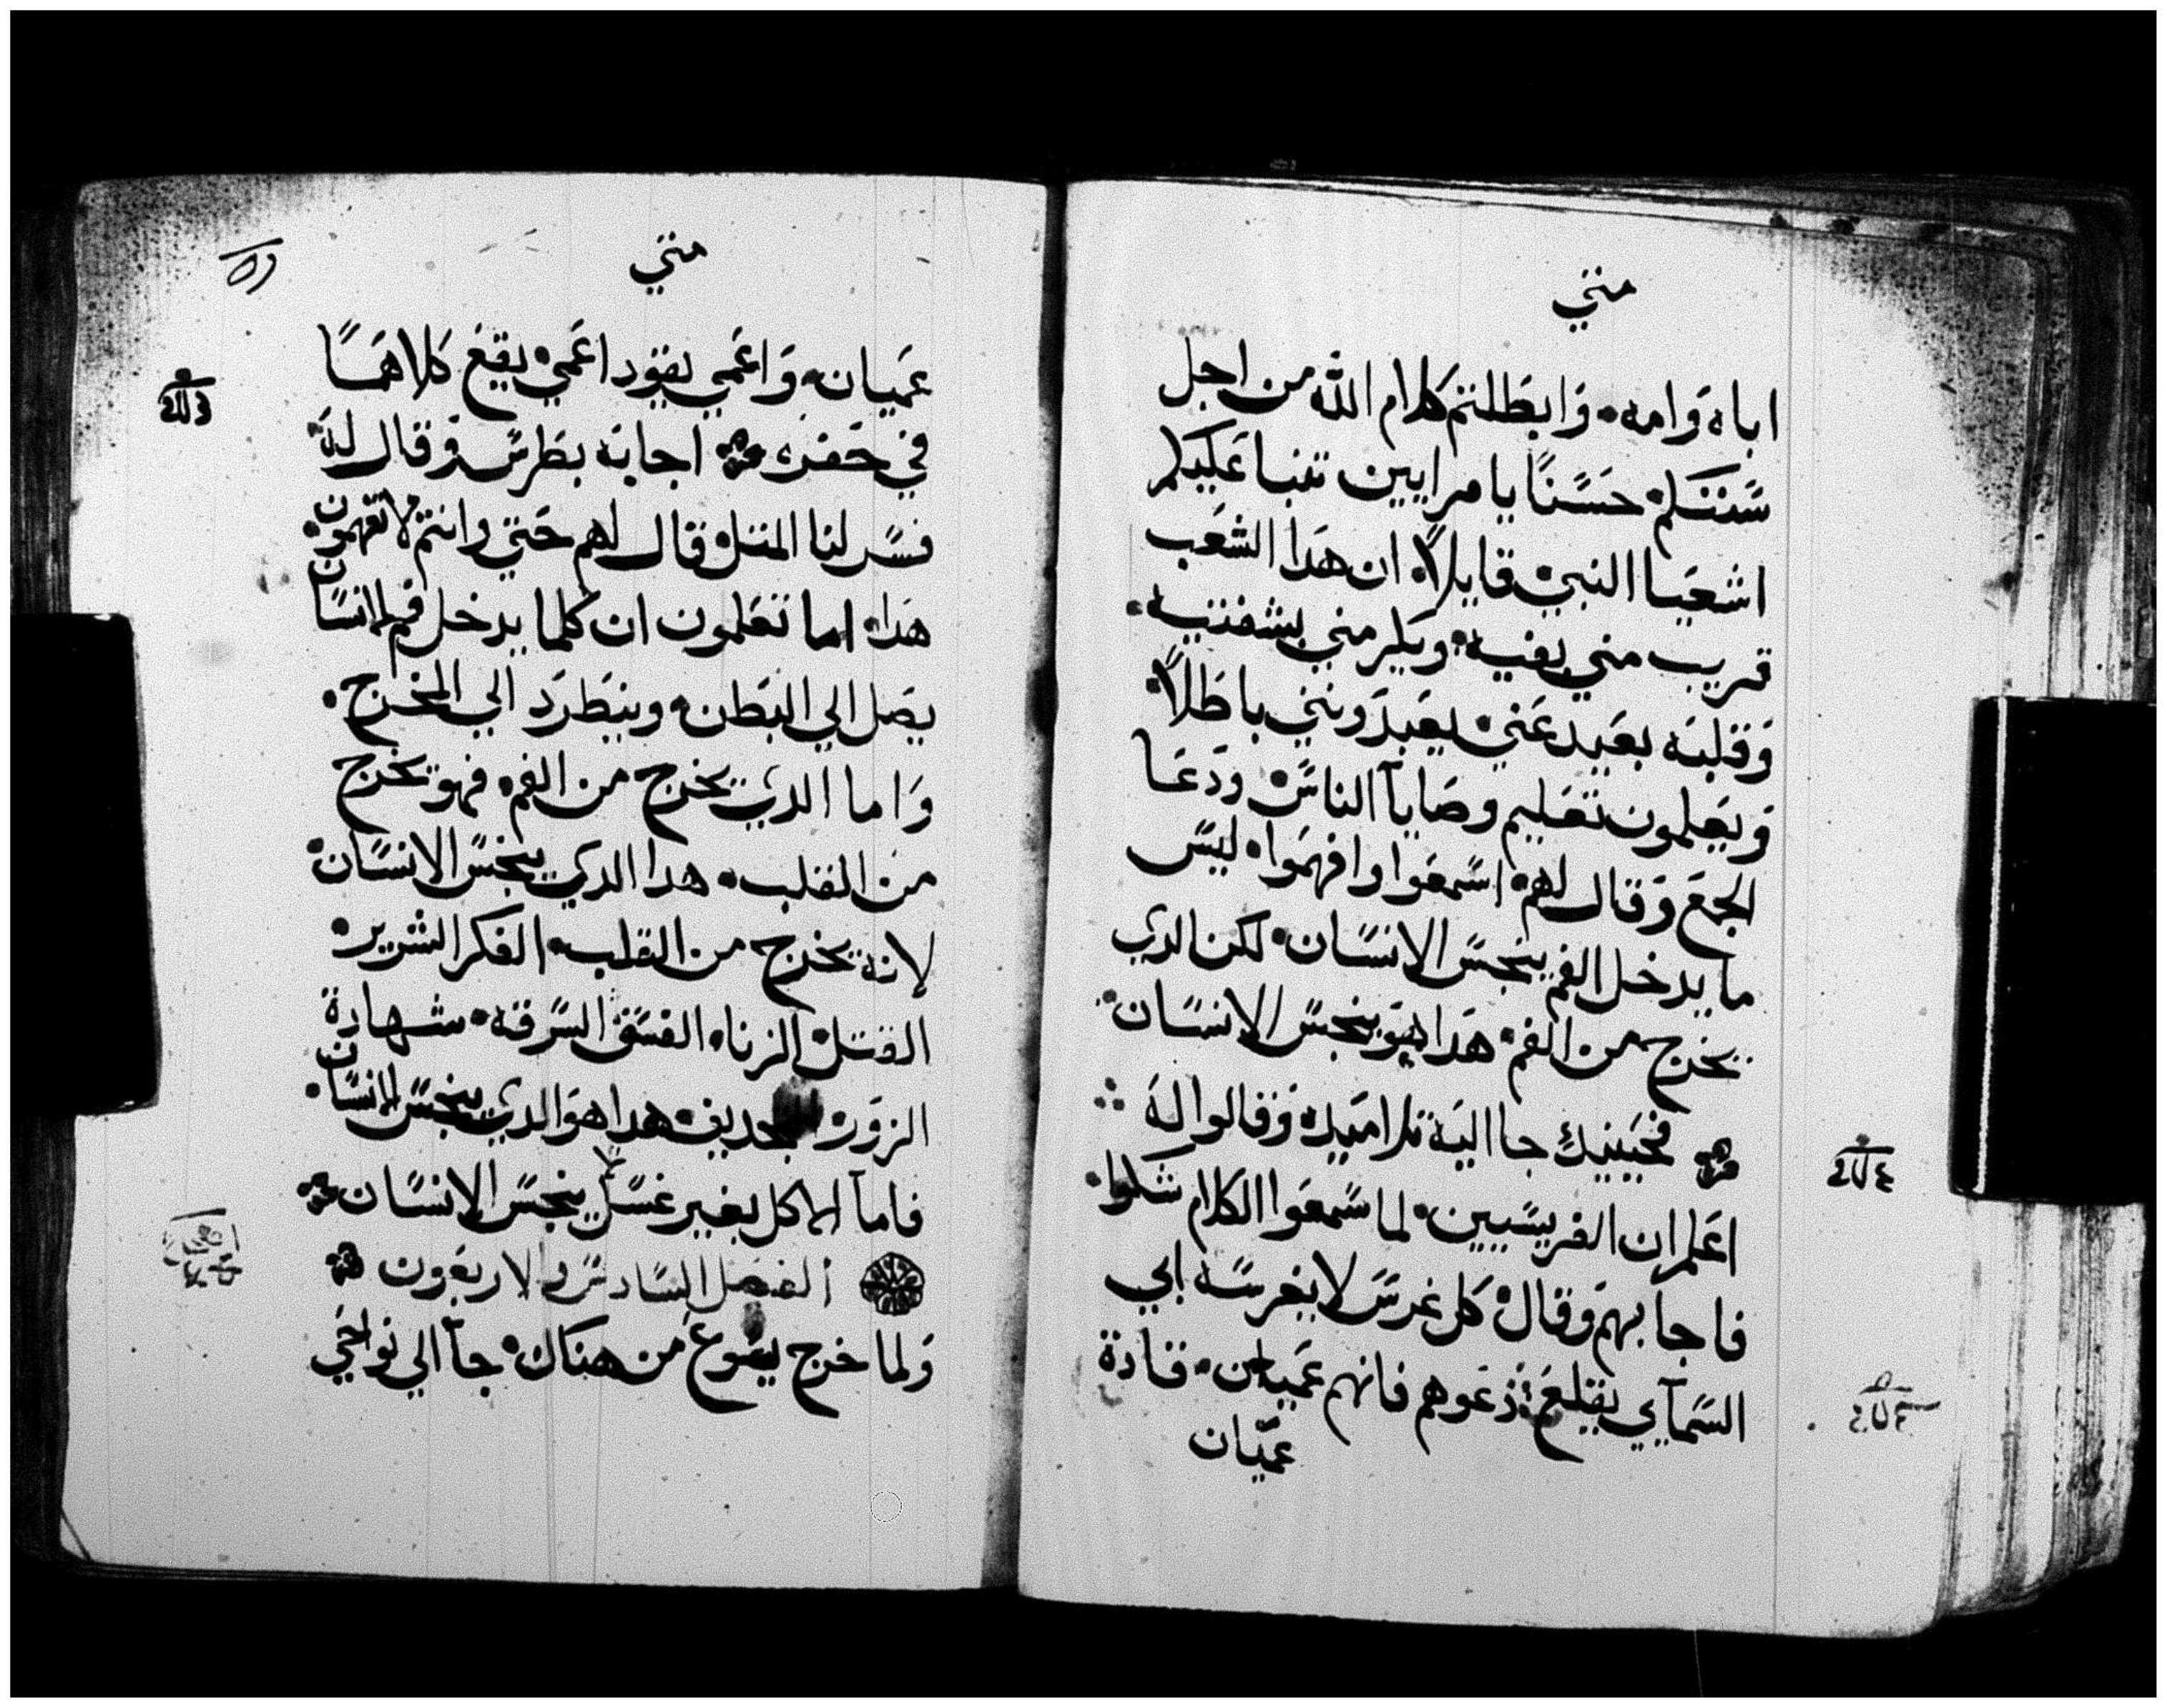 متي
اباه وَامه۰ وَابطَلتم كلام الله من اجل
سَنتكم۰ حسَنًا يا مرايين تنبا عَليكم
اشعيا النبي۰ قايلاً۰ ان هدا الشعَب
قريب مني بفيه۰ ويكرمني بشفتيه۰
وَقلبَه بعَيد عَني۰ يعَبدَونني باطَلاً۰
وَيعَلمون تعَليم وصَايآ الناسَ۰ ودَعَا
الجمعَ وَقال لهم۰ اسَمعَوا وافهمَوا۰ ليسَ
ما يدخل الفم ينجسَ الانسَان۰ لكن الدي
يخرج من الفم۰ هدَا هوَ ينجسَ الانسَان
فحَينيدٍ جا اليَه تلاميَده وَقالوا لهَ
اعَلم ان الفريسَيين۰ لما سَمعَوا الكلام شكوا۰
فاجابهم وَقال۰ كل غرسَ لا يغرسَه ابي
السَمآيي يقلعَ۰ دَعَوهم فانهم عَميان۰ قادة
عميَان
متي
عمَيان۰ وَاعَمي يقوَد اعَمي۰ يقعَ كلاهمَا
في حفرَه اجابهَ بطَرسَ وَقال لهَ۰
فسَر لنا المتل۰ قال لهم حَتي وانتم لا تفهمون۰
هدَا۰ اما تعَلمون ان كلما يدخل فم الانسَان
يصَل الي البَطن۰ وينطَردَ الي المخرج۰
وَاما الدي يخرج من الفم۰ فهو يخرج
من القلب۰ هدا الدي ينجسَ الانسَان۰
لانهَ يخرج من القلب۰ الفكر الشرير۰
القتل۰ الزنا۰ الفسَق۰ السَرقه۰ شهادة
الزوَر۰ التجديف۰ هدا هوَ الدي ينجسَ الانسَان۰
فامآ الاكل بغير غسَل لا ينجسَ الانسَان
الفصَل السَادسَ والاربعَون
وَلما خرج يسَوعَ من هناك۰ جآ الي نواحَي